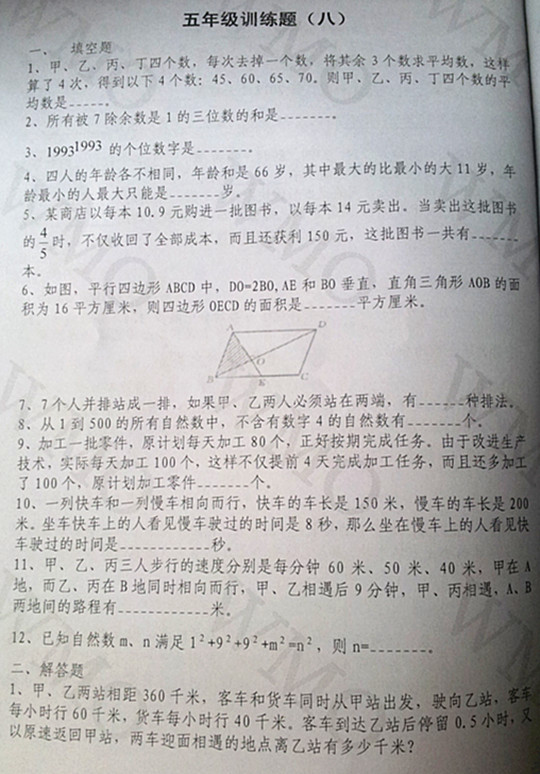 五年级训练题（八）
一、 填空题
1、甲、乙、丙、丁四个数，每次去掉一个数，将其余3个数求平均数，这样
算了4次，得到以下4个数：45、60、65、70。则甲、乙、丙、丁四个数的平
均数是-----。
2、所有被7除余数是1的三位数的和是-------。
3、1993^1993 的个位数字是-------。
4、四人的年龄各不相同，年龄和是66岁，其中最大的比最小的大11岁，年
龄最小的人最大只能是-------岁。
5、某商店以每本10.9元购进一批图书，以每本14元卖出。当卖出这批图书
的4/5时，不仅收回了全部成本，而且还获利150元，这批图书一共有-------
本。
6、如图，平行四边形ABCD中，DO=2BO,AE和BO垂直，直角三角形AOB的面
积为16平方厘米，则四边形OECD的面积是-------平方厘米。
A D
O
B E C
7、7个人并排站成一排，如果甲、乙两人必须站在两端，有------种排法。
8、从1到500的所有自然数中，不含有数字4的自然数有-------个。
9、加工一批零件，原计划每天加工80个，正好按期完成任务。由于改进生产
技术，实际每天加工100个，这样不仅提前4天完成加工任务，而且还多加工
了100个，原计划加工零件-------个。
10、一列快车和一列慢车相向而行，快车的车长是150米，慢车的车长是200
米。坐车快车上的人看见慢车驶过的时间是8秒，那么坐在慢车上的人看见快
车驶过的时间是------------秒。
11、甲、乙、丙三人步行的速度分别是每分钟60米、50米、40米，甲在A
地，而乙、丙在B地同时相向而行，甲、乙相遇后9分钟，甲、丙相遇，A、B
两地间的路程有------------米。
12、已知自然数m、n满足1²+9²+9²+m²=n²，则n=--------。
二、解答题
1、甲、乙两站相距360千米，客车和货车同时从甲站出发，驶向乙站，客车
每小时行60千米，货车每小时行40千米。客车到达乙站后停留0.5小时，又
以原速返回甲站，两车迎面相遇的地点离乙站有多少千米？
WMO
WMO
WMO
WMO
WMO